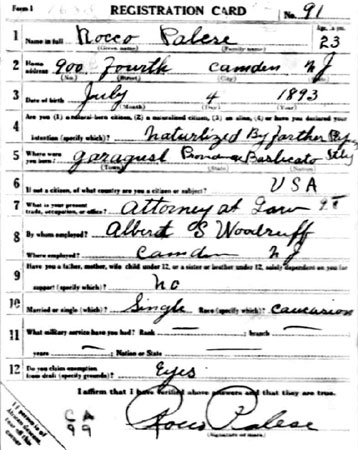 Form 1 REGISTRATION CARD No. 91
1 Name in full Rocco Palese Age, in yrs. 23
(Given name) (Family name)
2 Home address 900 Fourth Camden NJ
(No.) (Street) (City) (State)
3 Date of birth July 4 1893
(Month) (Day) (Year)
4 Are you (1) a natural-born citizen, (2) a naturalized citizen, (3) an alien, (4) or have you declared your
intention (specify which)? Naturlized By Farther
5 Where were you born? Italy
(Town) (State) (Nation)
6 If not a citizen, of what country are you a citizen or subject? USA
7 What is your present trade, occupation, or office? Attorney at Law
8 By whom employed? Albert S Woodruff
Where employed? Camden NJ
9 Have you a father, mother, wife child under 12, or a sister or brother under 12, solely dependent on you for
support (specify which)? No
10 Married or single (which)? Single Race (specify which)? Caucasion
11 What military service have you had? Rank — ; branch —
years — ; Nation or State —
12 Do you claim exemption from draft (specify grounds)? Eyes
I affirm that I have verified above answers and that they are true.
Rocco Palese
(Signature or mark)